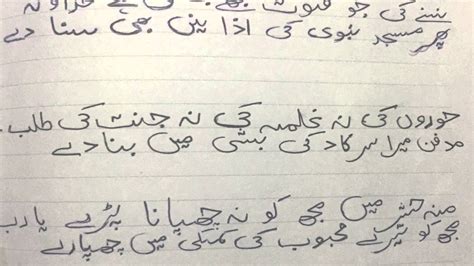 بننے کی جو قوت
پھر مسجد نبوی کی اذانیں بھی سنا دے
حوروں کی نہ غلمہ کی نہ جنت کی طلب
مدفن میرا سرکار کی بستی میں بنا دے
منہ حشر میں مجھ کو نہ چھپانا پڑے یارب
مجھ کو تیرے محبوب کی کملی میں چھپا دے